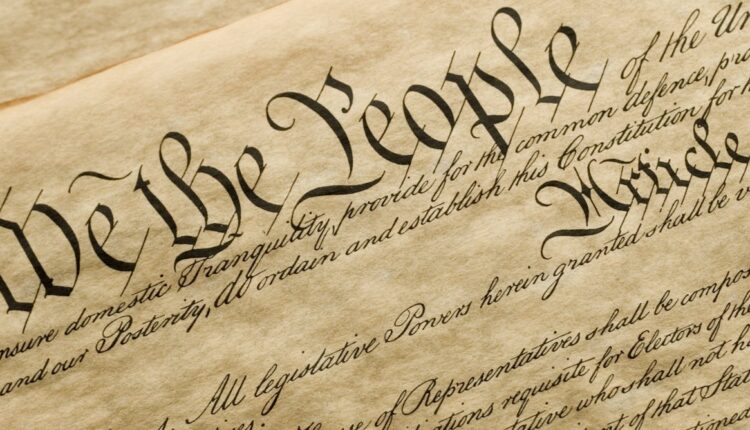 We the People of the Un
nsure domestic Tranquility, provide for the common defence, pro
and our Posterity, do ordain and establish this Constitution for th
Article
All legislative Powers herein granted shall be v
of Representatives shall be compos
requisite for Electors of the
who shall not ha
of that Stat